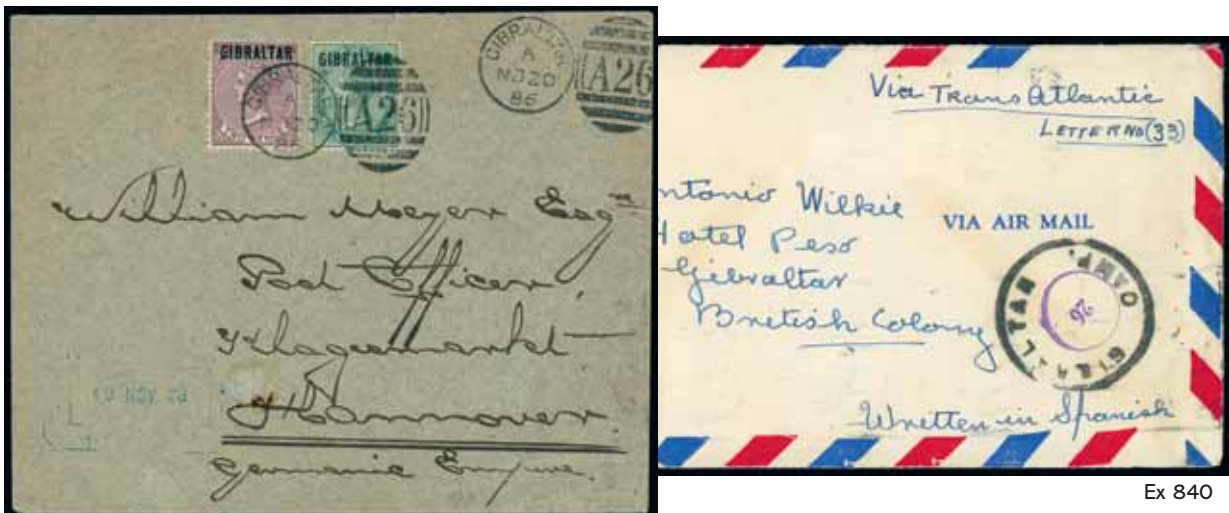 GIBRALTAR
GIBRALTAR
GIBRALTAR
A
NO 20
86
A26
A26
William Meyer Esqre
Post Officer,
Klagesmarkt
Hannover.
Germanic Empire
Via Trans Atlantic
LETTER NO (33)
Antonio Wilkie
Hotel Peso
Gibraltar
British Colony
VIA AIR MAIL
GIBRALTAR
CAMP.
26
Written in Spanish
Ex 840